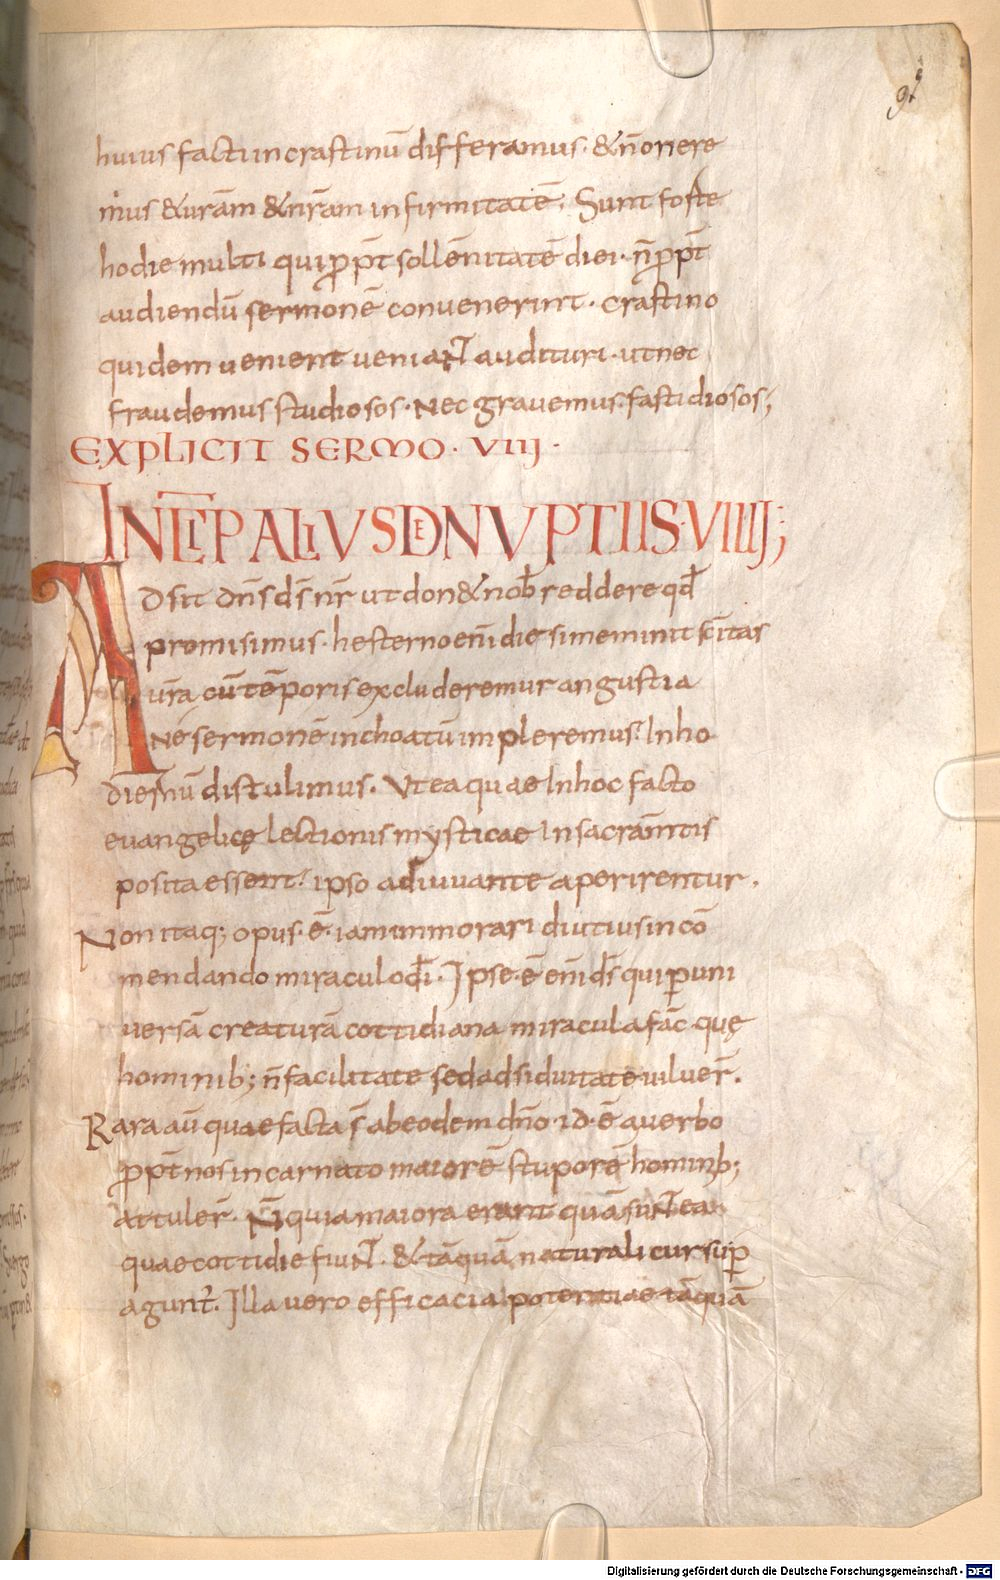 91
huius facti in crastinū differamus· & n̄ onere
mus & urām & nr̄am infirmitatē; Sunt forte
hodie multi qui p̄pt̄ sollēnitatē diei· n̄ p̄pt̄
audiendū sermonē convenerint· crastino
quidem uenient veniaNT audituri· ut nec
fraudemus studiosos· Nec gravemus fastidiosos;
EXPLICIT SERMO· VIII·
INCĪP ALIVS DE NVPTIIS· VIIII;
Adsit dn̄s ds̄ nr̄ ut don& nob̄ reddere qd̄
promisimus· hesterno enī die si meminit sc̄itas
urā cū tēporis excluderemur angustia
Ne sermonē inchoatū impleremus· In ho
diernū distulimus· Vt ea quae In hoc facto
evangelicę lectionis mysticae In sacram̄tis
posita essent· ipso adiuuante aperirentur·
Non itaq; opus· ē· iam inmorari diutius in cō
mendando miraculo dī· Ipse· ē enī ds̄ qui p̄ uni
uersā creaturā cottidiana miracula fac̄· quę
hominib; n̄ facilitate sed adsiduitate uiluer̄·
Rara aū quae facta s̄ ab eodem dn̄o· id· ē a uerbo
p̄pt̄ nos incarnato maiorē stuporē hominib;
attuler̄· N̄ quia maiora erant quā suNT ea
quae cottidie fiuNT· & tāquā naturali cursu p̄
agunt̄· Illa vero efficacia potentiae tāquā
Digitalisierung gefördert durch die Deutsche Forschungsgemeinschaft - DFG